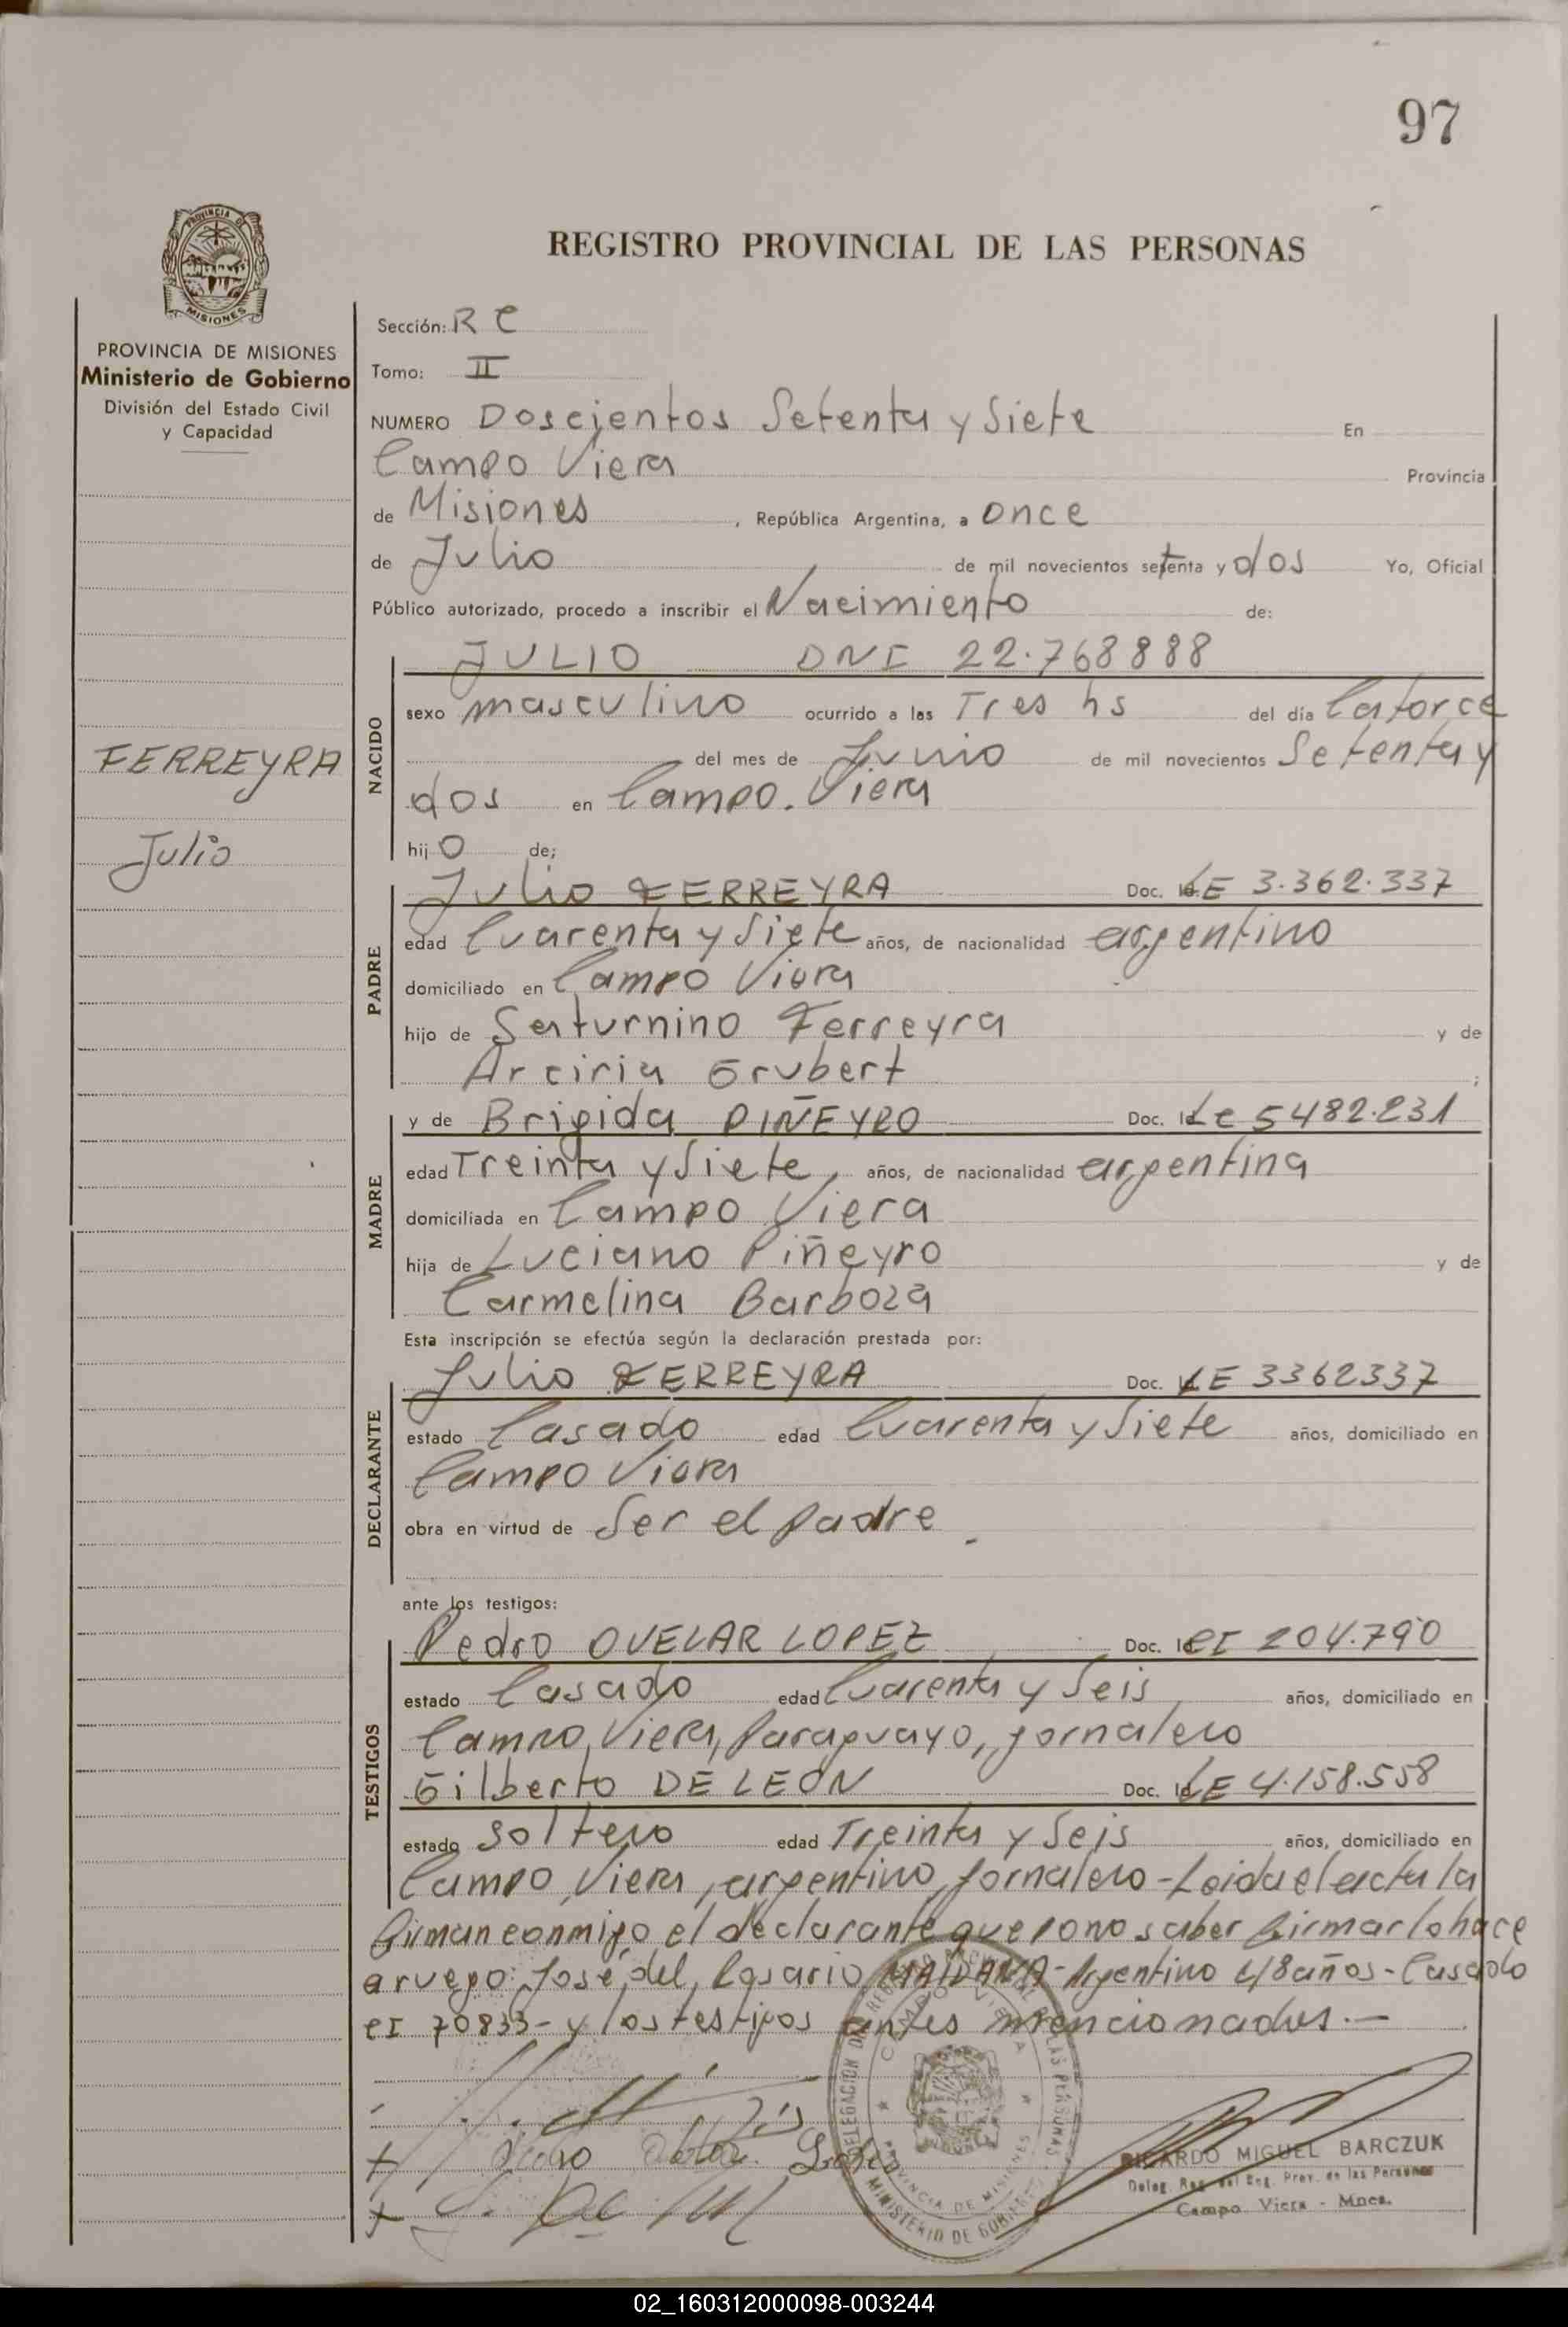 97
PROVINCIA DE
MISIONES
REGISTRO PROVINCIAL DE LAS PERSONAS
PROVINCIA DE MISIONES
Ministerio de Gobierno
División del Estado Civil
y Capacidad
FERREYRA
Julio
Sección: R C
Tomo: II
NUMERO Doscientos Setenta y Siete En
Campo Viera Provincia
de Misiones, República Argentina, a once
de Julio de mil novecientos setenta y dos Yo, Oficial
Público autorizado, procedo a inscribir el Nacimiento de:
NACIDO
JULIO DNI 22.768888
sexo masculino ocurrido a las Tres hs del día Catorce
del mes de Junio de mil novecientos Setenta y
dos en Campo. Viera
hijo de;
PADRE
Julio FERREYRA Doc. Id. LE 3.362.337
edad Cuarenta y Siete años, de nacionalidad argentino
domiciliado en Campo Viera
hijo de Saturnino Ferreyra y de
Arciria Grubert ;
MADRE
y de Brigida PIÑEYRO Doc. Id. LC 5482.231
edad Treinta y Siete, años, de nacionalidad argentina
domiciliada en Campo Viera
hija de Luciano Piñeyro y de
Carmelina Barboza
Esta inscripción se efectúa según la declaración prestada por:
DECLARANTE
Julio FERREYRA Doc. Id. LE 3362337
estado Casado edad Cuarenta y Siete años, domiciliado en
Campo Viera
obra en virtud de Ser el padre.
ante los testigos:
TESTIGOS
Pedro OVELAR LOPEZ Doc. Id. CI 204.790
estado Casado edad Cuarenta y Seis, años, domiciliado en
Campo Viera, Paraguayo, jornalero
Gilberto DE LEON Doc. Id. LE 4.158.558
estado Soltero edad Treinta y Seis años, domiciliado en
Campo Viera, argentino, jornalero - Leida el acta la
firman conmigo el declarante que por no saber firmar lo hace
a ruego: José del Rosario MAIDANA - Argentino 48 años - Casado
CI 70833 - y los testigos antes mencionados.-
DELEGACION DEL REGISTRO PROVINCIAL DE LAS PERSONAS
CAMPO VIERA
PROVINCIA DE MISIONES
MINISTERIO DE GOBIERNO
RICARDO MIGUEL BARCZUK
Deleg. Reg. del Reg. Prov. de las Personas
Campo Viera - Mnes.
02_160312000098-003244